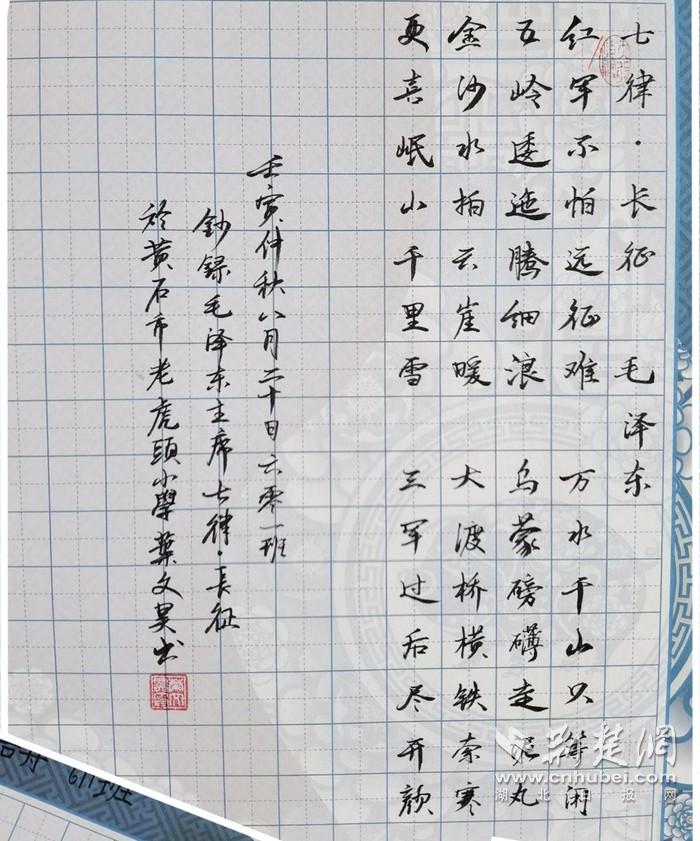 七律·长征 毛泽东
红军不怕远征难 万水千山只等闲
五岭逶迤腾细浪 乌蒙磅礴走泥丸
金沙水拍云崖暖 大渡桥横铁索寒
更喜岷山千里雪 三军过后尽开颜
壬寅仲秋八月二十日六零一班
鈔録毛泽东主席七律·長征
於黄石市老虎頭小學葉文昊书
荆楚網
www.cnhubei.com
湖北日报网
611班